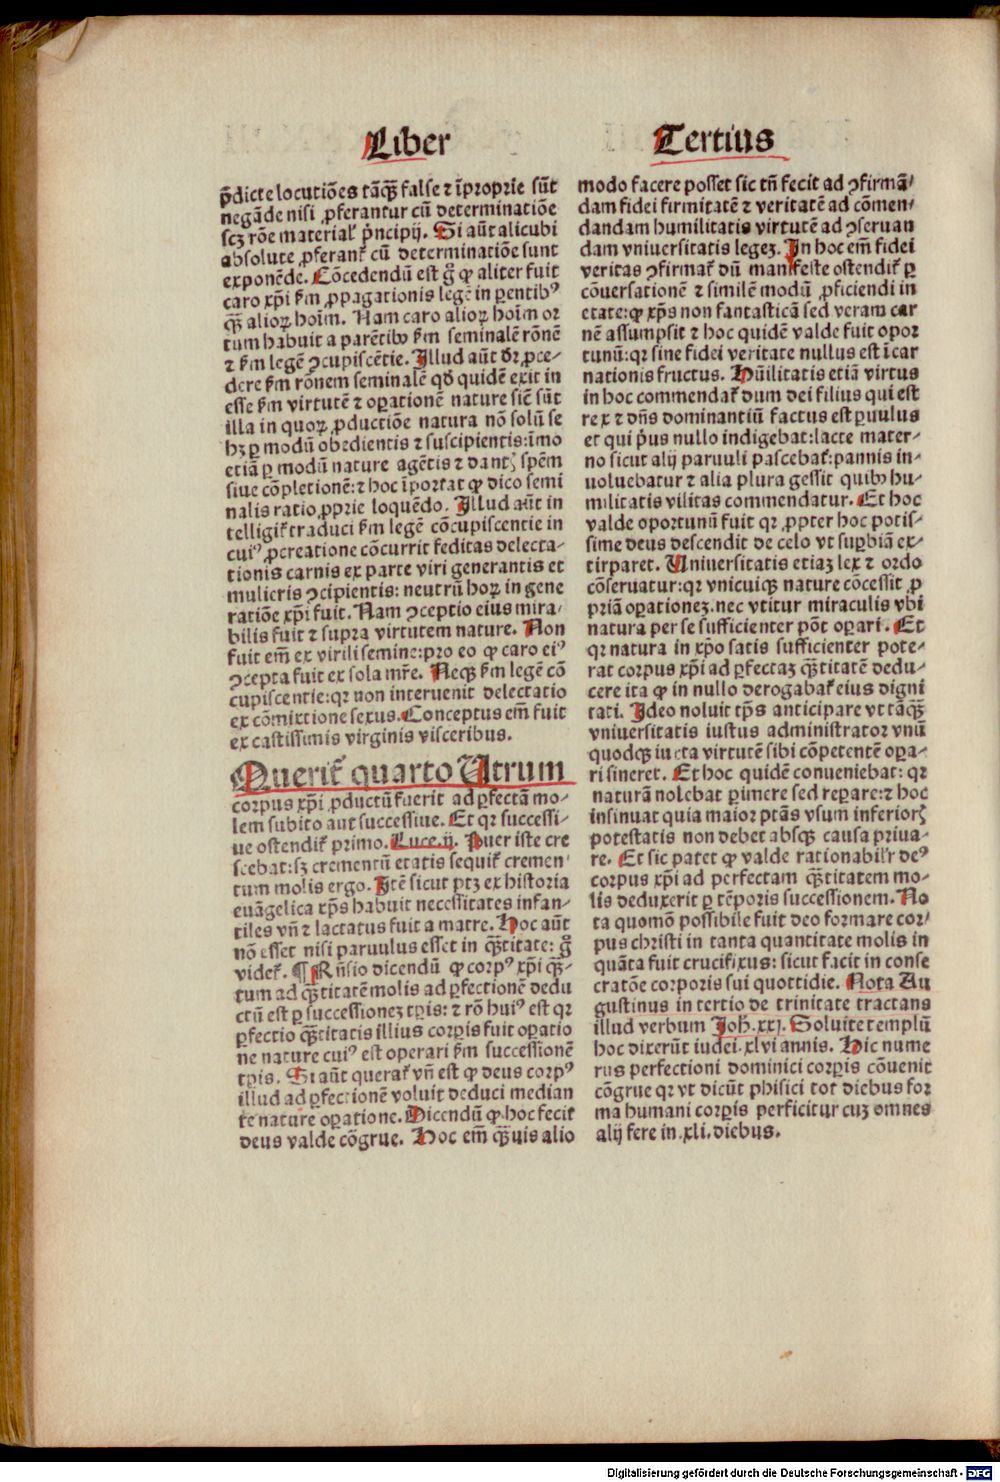 Liber Tertius
p̄dicte locutiōes tāꝙ̄ false ⁊ īproprie sūt
negāde nisi ꝓferantur cū determinatiōe
scꝫ rōe material᷑ p̄ncipij. Si aūt alicubi
absolute ꝓferant᷑ cū determinatiōe sunt
exponēde. Cōcedendū est gͦ ꝙ aliter fuit
caro xp̄i ẜm ꝓpagationis legē in ꝑentibꝰ
ꝙ̄ alioꝝ hoīm. Nam caro alioꝝ hoīm or
tum habuit a parētibꝰ ẜm seminalē rōnē
⁊ ẜm legē ↄcupiscētie. Illud aūt dr̄ ꝓce⸗
dere ẜm rōnem seminalē qd̄ quidē exit in
esse ẜm virtutē ⁊ oꝑationē nature sic̄ sūt
illa in quoꝝ ꝓductiōe natura nō solū se
hꝫ ꝑ modū obedientis ⁊ suscipientis:īmo
etiā ꝑ modū nature agētis ⁊ dantꝭ spēm
siue cōpletionē:⁊ hoc īportat ꝙ dico semi
nalis ratio ꝓprie loquēdo. Illud aūt in
telligit᷑ traduci ẜm legē cōcupiscentie in
cuiꝰ ꝓcreatione cōcurrit feditas delecta⸗
tionis carnis ex parte viri generantis et
mulieris ↄcipientis: neutrū hoꝝ in gene
ratiōe xp̄i fuit. Nam ↄceptio eius mira⸗
bilis fuit ⁊ supra virtutem nature. Non
fuit em̄ ex virili semine:pro eo ꝙ caro eiꝰ
ↄcepta fuit ex sola mr̄e. Neqꝫ ẜm legē cō
cupiscentie:qꝛ non interuenit delectatio
ex cōmixtione sexus. Conceptus em̄ fuit
ex castissimis virginis visceribus.
Querit᷑ quarto Utrum
corpus xp̄i ꝓductū fuerit ad ꝑfectā mo⸗
lem subito aut successiue. Et qꝛ successi⸗
ue ostendit᷑ primo. Luce.ij. Puer iste cre
scebat:sꝫ crementū etatis sequit᷑ cremen⸗
tum molis ergo. Itē sicut ptꝫ ex historia
euāgelica xp̄s habuit necessitates infan⸗
tiles vn̄ ⁊ lactatus fuit a matre. Hoc aūt
nō esset nisi paruulus esset in ꝙ̄titate: gͦ
videt᷑. ¶ Rn̄sio dicendū ꝙ corpꝰ xp̄i ꝙ̄⸗
tum ad ꝙ̄titatē molis ad ꝑfectionē dedu
ctū est ꝑ successionez tꝑis: ⁊ rō huiꝰ est qꝛ
ꝑfectio ꝙ̄titatis illius corꝑis fuit oꝑatio
ne nature cuiꝰ est operari ẜm successionē
tꝑis. Si aūt querat᷑ vn̄ est ꝙ deus corpꝰ
illud ad ꝑfectionē voluit deduci median
te nature oꝑatione. Dicendū ꝙ hoc fecit
deus valde cōgrue. Hoc em̄ ꝙ̄uis alio
modo facere posset sic tn̄ fecit ad ↄfirmā⸗
dam fidei firmitatē ⁊ veritatē ad cōmen⸗
dandam humilitatis virtutē ad ↄseruan
dam vniuersitatis legeꝫ. In hoc em̄ fidei
veritas ↄfirmat᷑ dū manifeste ostendit᷑ ꝑ
cōuersationē ⁊ similē modū ꝓficiendi in
etate:ꝙ xp̄s non fantasticā sed veram car
nē assumpsit ⁊ hoc quidē valde fuit opor
tunū:qꝛ sine fidei veritate nullus est ī car
nationis fructus. Hūilitatis etiā virtus
in hoc commendat᷑ dum dei filius qui est
rex ⁊ dn̄s dominantiū factus est ꝑuulus
et qui pͥus nullo indigebat:lacte mater⸗
no sicut alij paruuli pascebat᷑:pannis in⸗
uoluebatur ⁊ alia plura gessit quibꝰ hu⸗
militatis vilitas commendatur. Et hoc
valde oportunū fuit qꝛ ꝓpter hoc potis⸗
sime deus descendit de celo vt suꝑbiā ex⸗
tirparet. Uniuersitatis etiaꝫ lex ⁊ ordo
cōseruatur:qꝛ vnicuiqꝫ nature cōcessit ꝓ
priā oꝑationeꝫ.nec vtitur miraculis vbi
natura per se sufficienter pōt oꝑari. Et
qꝛ natura in xp̄o satis sufficienter pote⸗
rat corpus xp̄i ad ꝑfectaꝫ ꝙ̄titatē dedu⸗
cere ita ꝙ in nullo derogabat᷑ eius digni
tati. Ideo noluit tp̄s anticipare vt tāꝙ̄
vniuersitatis iustus administrator vnū
quodqꝫ iuxta virtutē sibi cōpetentē oꝑa⸗
ri sineret. Et hoc quidē conueniebat: qꝛ
naturā nolebat ꝑimere sed reꝑare:⁊ hoc
insinuat quia maior ptās vsum inferiorꝭ
potestatis non debet absqꝫ causa priua⸗
re. Et sic patet ꝙ valde rationabil᷑r deꝰ
corpus xp̄i ad perfectam ꝙ̄titatem mo⸗
lis deduxerit ꝑ tēporis successionem. No
ta quomō possibile fuit deo formare cor⸗
pus christi in tanta quantitate molis in
quāta fuit crucifixus: sicut facit in conse
cratōe corporis sui quottidie. Nota Au
gustinus in tertio de trinitate tractans
illud verbum Joh̄.xxj. Soluite templū
hoc dixerūt iudei.xlvi annis. Hic nume
rus perfectioni dominici corꝑis cōuenit
cōgrue qꝛ vt dicūt phisici tot diebus for
ma humani corꝑis perficitur cuꝫ omnes
alij fere in.xli.diebus.
Digitalisierung gefördert durch die Deutsche Forschungsgemeinschaft - DFG